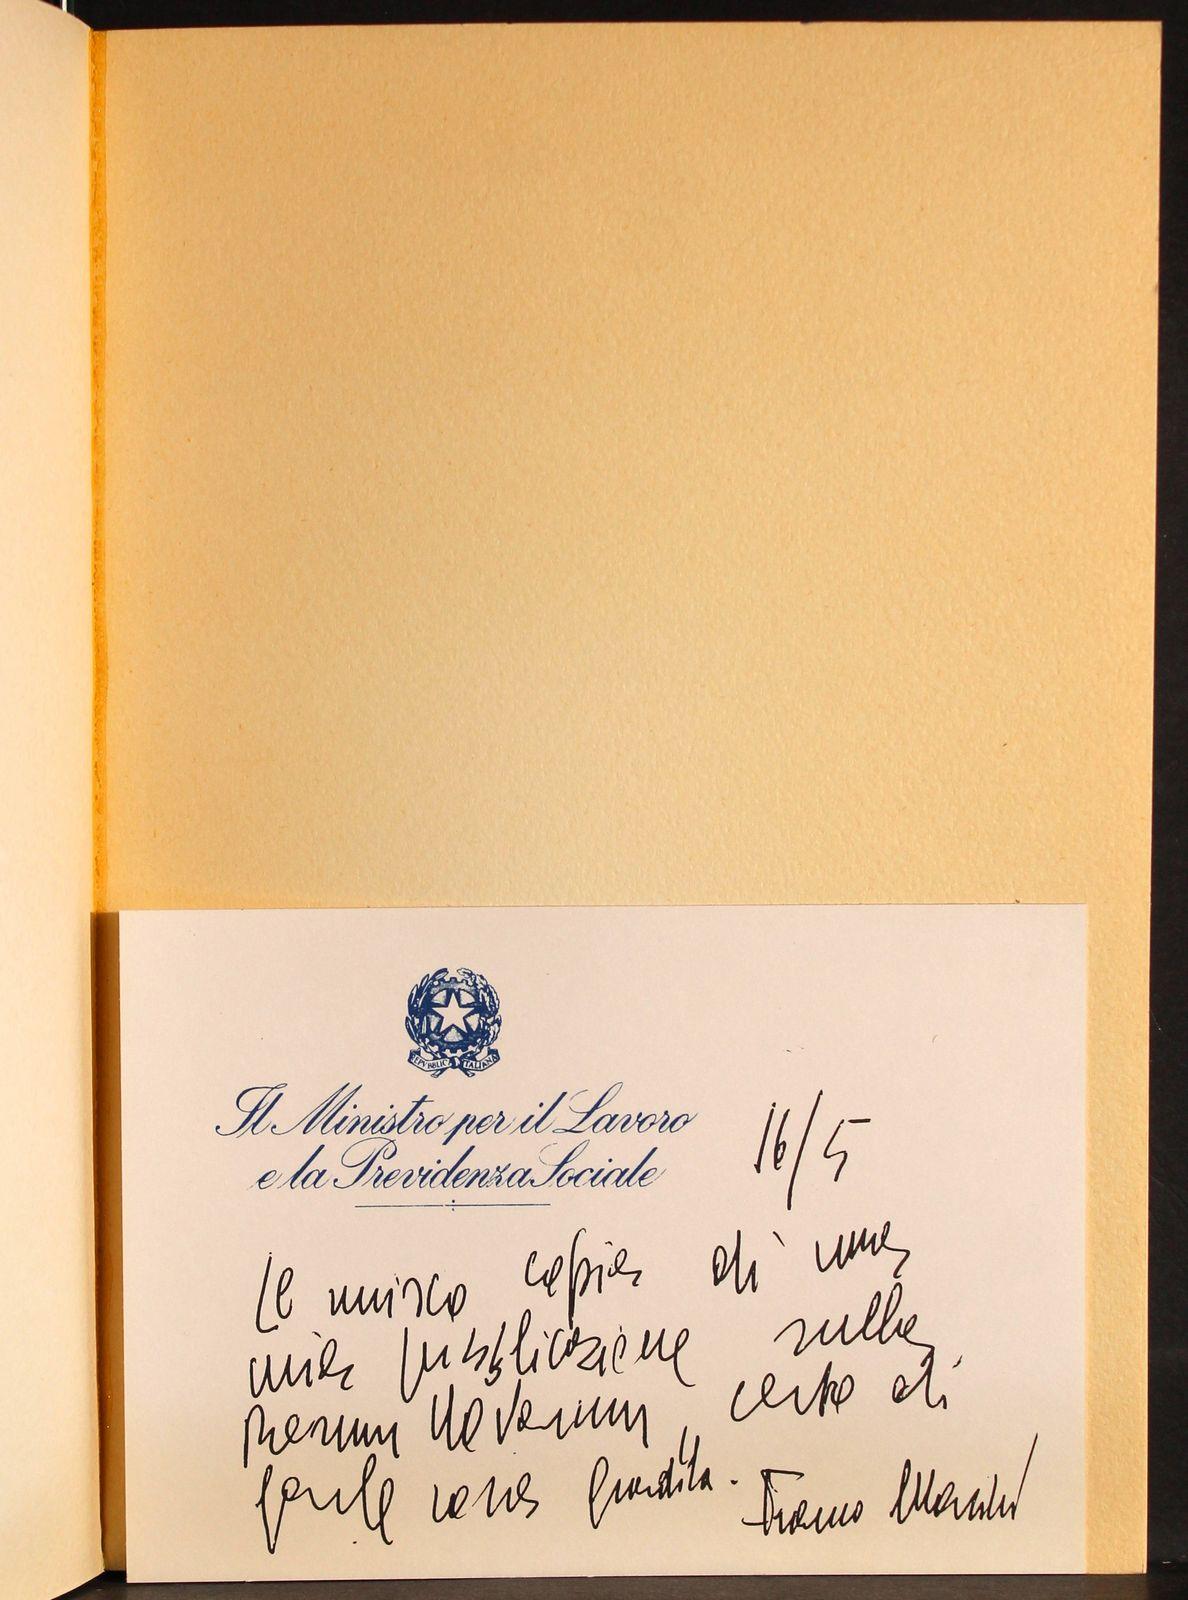 REPVBBLICA ITALIANA
Il Ministro per il Lavoro
e la Previdenza Sociale
16/5
Le unisco copia di una
mia pubblicazione sulla
Rerum Novarum, certo di
farle cosa gradita. Franco Marini